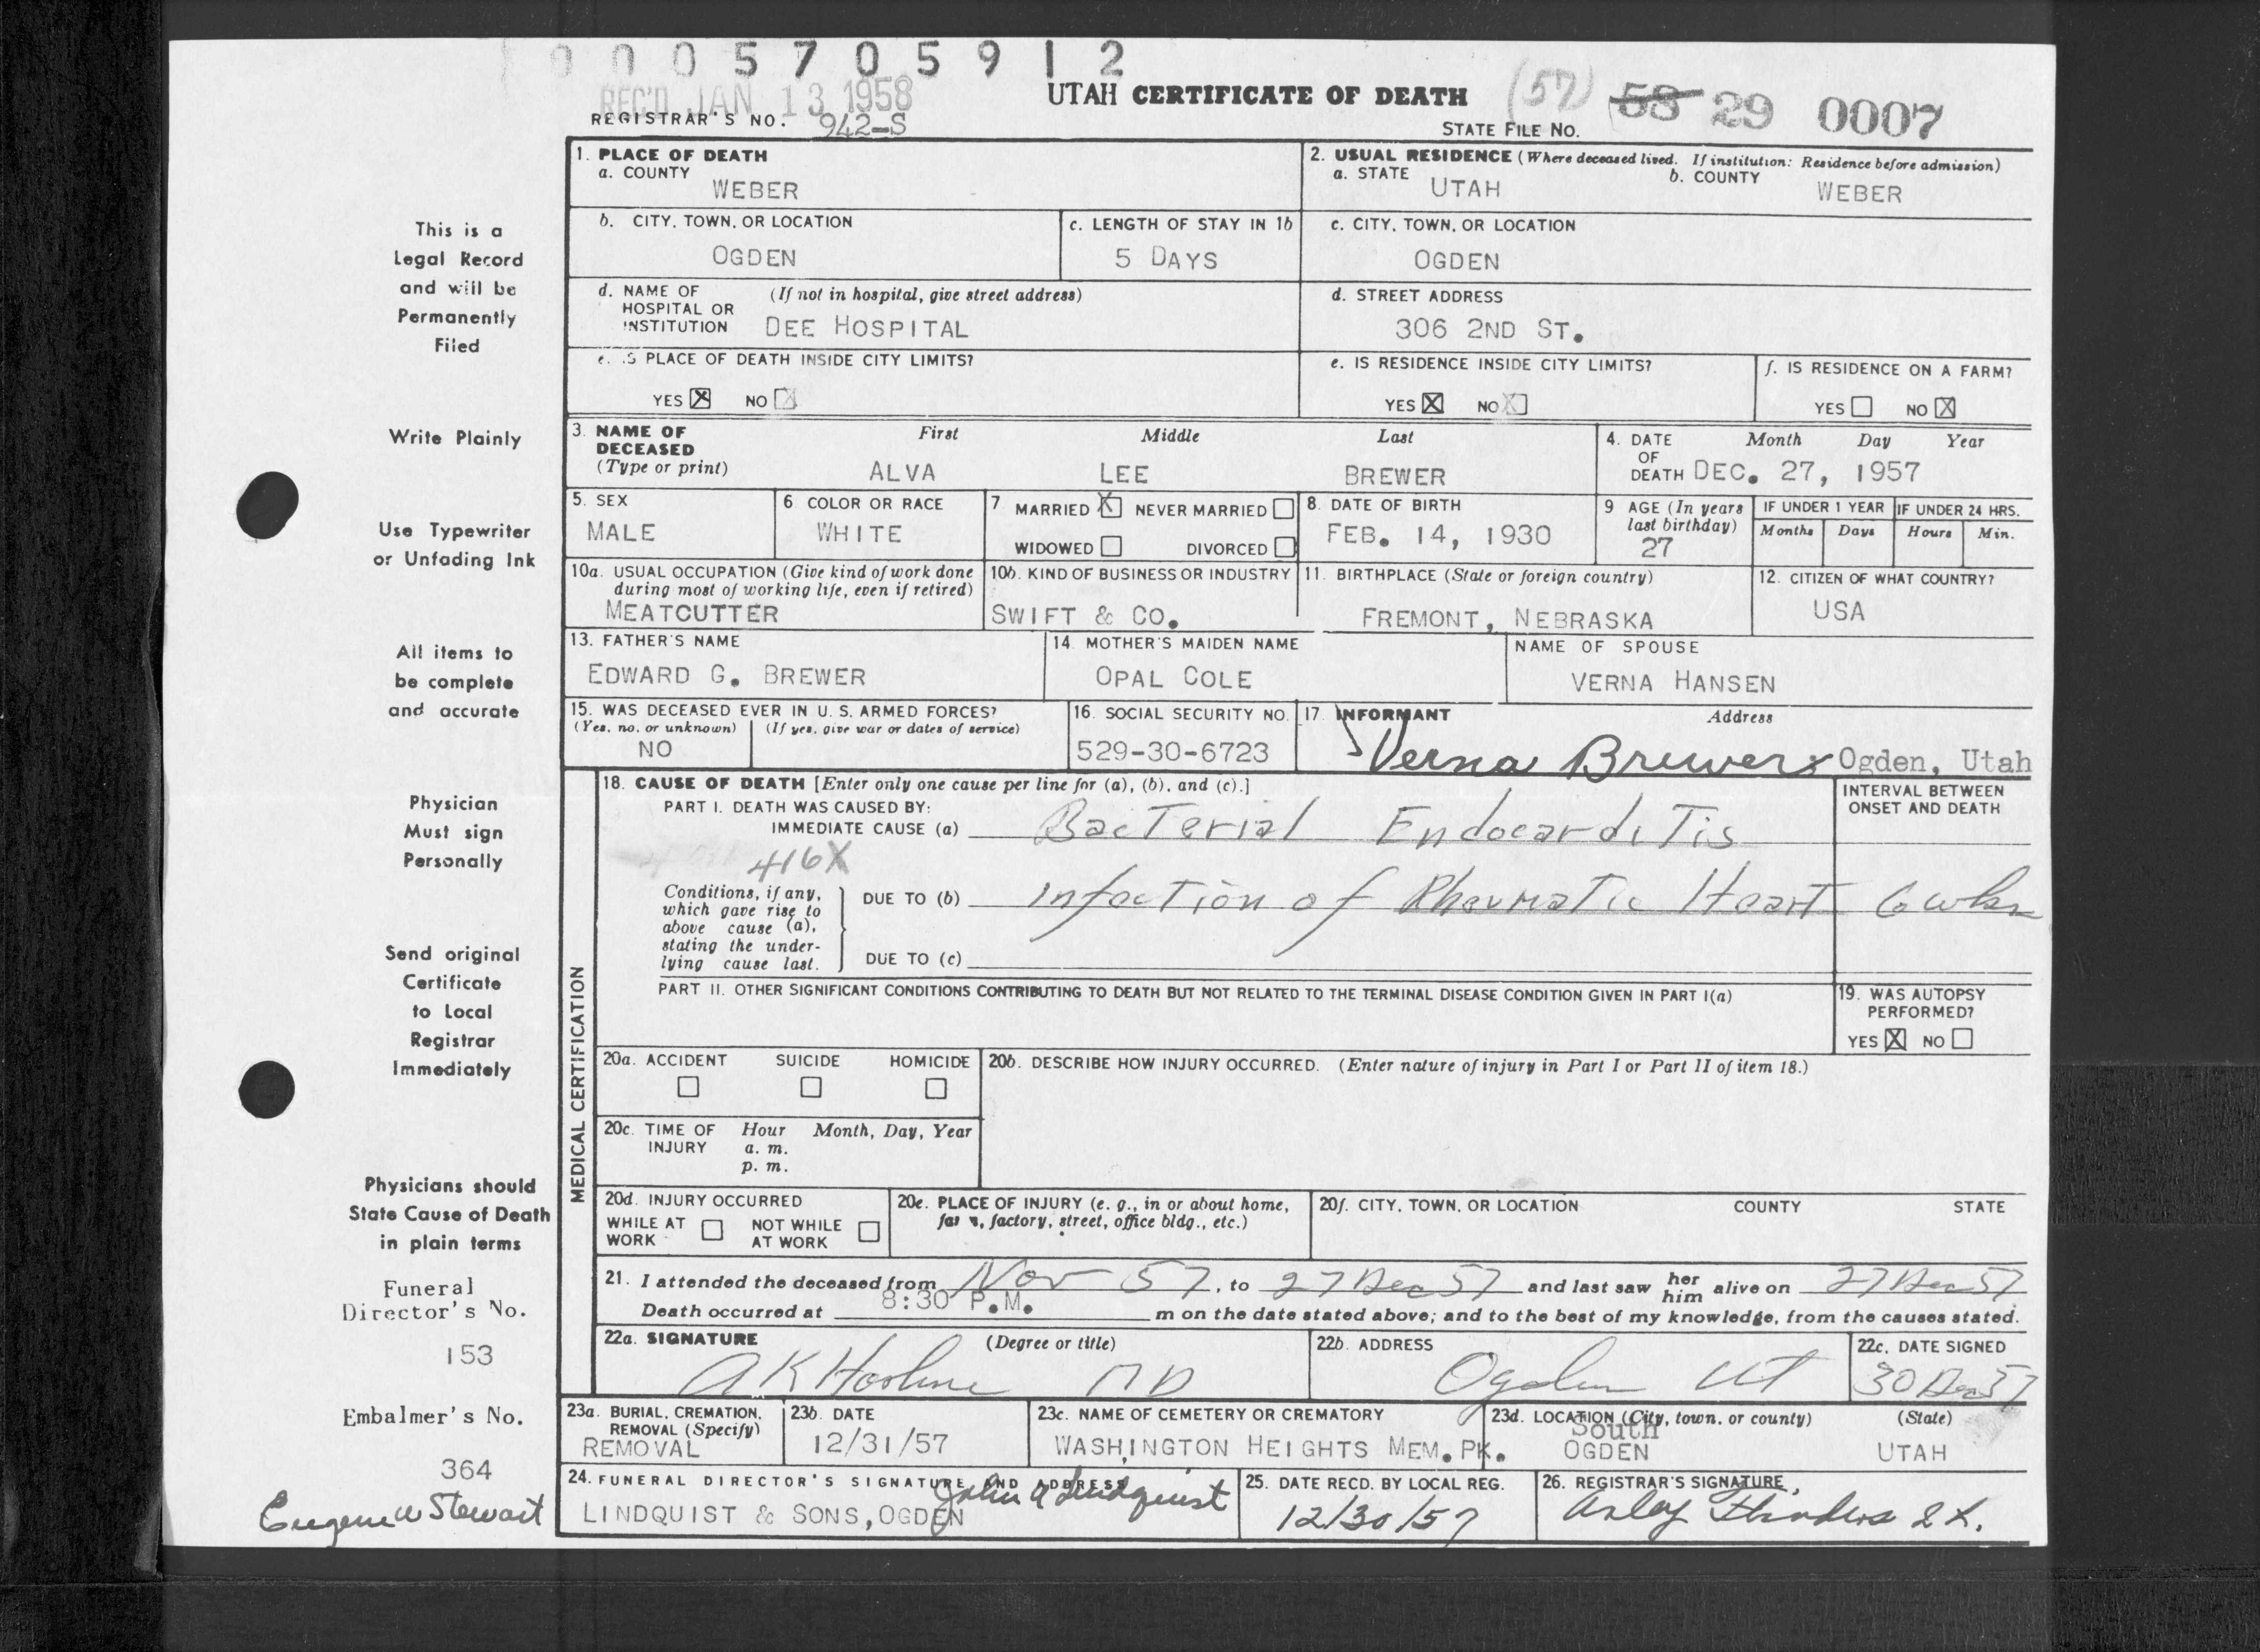 0005705912
REC'D JAN 13 1958
UTAH CERTIFICATE OF DEATH
(57) 58 29 0007
REGISTRAR'S NO. 942-S
STATE FILE NO.
This is a
Legal Record
and will be
Permanently
Filed
Write Plainly
Use Typewriter
or Unfading Ink
All items to
be complete
and accurate
Physician
Must sign
Personally
Send original
Certificate
to Local
Registrar
Immediately
Physicians should
State Cause of Death
in plain terms
Funeral
Director's No.
153
Embalmer's No.
364
Eugene W Stewart
1. PLACE OF DEATH
a. COUNTY
WEBER
2. USUAL RESIDENCE (Where deceased lived. If institution: Residence before admission)
a. STATE UTAH b. COUNTY WEBER
b. CITY, TOWN, OR LOCATION
OGDEN
c. LENGTH OF STAY IN 1b
5 DAYS
c. CITY, TOWN, OR LOCATION
OGDEN
d. NAME OF (If not in hospital, give street address)
HOSPITAL OR
INSTITUTION DEE HOSPITAL
d. STREET ADDRESS
306 2ND ST.
e. IS PLACE OF DEATH INSIDE CITY LIMITS?
YES X NO X
e. IS RESIDENCE INSIDE CITY LIMITS?
YES X NO X
f. IS RESIDENCE ON A FARM?
YES NO X
3. NAME OF First Middle Last
DECEASED
(Type or print) ALVA LEE BREWER
4. DATE Month Day Year
OF
DEATH DEC. 27, 1957
5. SEX
MALE
6 COLOR OR RACE
WHITE
7 MARRIED X NEVER MARRIED
WIDOWED DIVORCED
8. DATE OF BIRTH
FEB. 14, 1930
9 AGE (In years
last birthday)
27
IF UNDER 1 YEAR
Months Days
IF UNDER 24 HRS.
Hours Min.
10a. USUAL OCCUPATION (Give kind of work done
during most of working life, even if retired)
MEATCUTTER
10b. KIND OF BUSINESS OR INDUSTRY
SWIFT & CO.
11. BIRTHPLACE (State or foreign country)
FREMONT, NEBRASKA
12. CITIZEN OF WHAT COUNTRY?
USA
13. FATHER'S NAME
EDWARD G. BREWER
14. MOTHER'S MAIDEN NAME
OPAL COLE
NAME OF SPOUSE
VERNA HANSEN
15. WAS DECEASED EVER IN U. S. ARMED FORCES?
(Yes, no, or unknown) (If yes, give war or dates of service)
NO
16. SOCIAL SECURITY NO.
529-30-6723
17. INFORMANT Address
Verna Brewer Ogden, Utah
MEDICAL CERTIFICATION
18. CAUSE OF DEATH [Enter only one cause per line for (a), (b), and (c).]
PART I. DEATH WAS CAUSED BY:
IMMEDIATE CAUSE (a) Bacterial Endocarditis
INTERVAL BETWEEN
ONSET AND DEATH
416X
Conditions, if any,
which gave rise to
above cause (a),
stating the under-
lying cause last.
DUE TO (b) Infection of Rheumatic Heart 6 wks
DUE TO (c)
PART II. OTHER SIGNIFICANT CONDITIONS CONTRIBUTING TO DEATH BUT NOT RELATED TO THE TERMINAL DISEASE CONDITION GIVEN IN PART I(a)
19. WAS AUTOPSY
PERFORMED?
YES X NO
20a. ACCIDENT SUICIDE HOMICIDE
20b. DESCRIBE HOW INJURY OCCURRED. (Enter nature of injury in Part I or Part II of item 18.)
20c. TIME OF Hour Month, Day, Year
INJURY a. m.
p. m.
20d. INJURY OCCURRED
WHILE AT NOT WHILE
WORK AT WORK
20e. PLACE OF INJURY (e. g., in or about home,
farm, factory, street, office bldg., etc.)
20f. CITY, TOWN, OR LOCATION COUNTY STATE
21. I attended the deceased from Nov 57, to 27 Dec 57 and last saw her him alive on 27 Dec 57
Death occurred at 8:30 P.M. m on the date stated above; and to the best of my knowledge, from the causes stated.
22a. SIGNATURE (Degree or title)
A K MD
22b. ADDRESS
Ogden Ut
22c. DATE SIGNED
30 Dec 57
23a. BURIAL, CREMATION,
REMOVAL (Specify)
REMOVAL
23b. DATE
12/31/57
23c. NAME OF CEMETERY OR CREMATORY
WASHINGTON HEIGHTS MEM. PK.
23d. LOCATION (City, town, or county) (State)
South
OGDEN UTAH
24. FUNERAL DIRECTOR'S SIGNATURE AND ADDRESS
John A Lindquist
LINDQUIST & SONS, OGDEN
25. DATE RECD. BY LOCAL REG.
12/30/57
26. REGISTRAR'S SIGNATURE